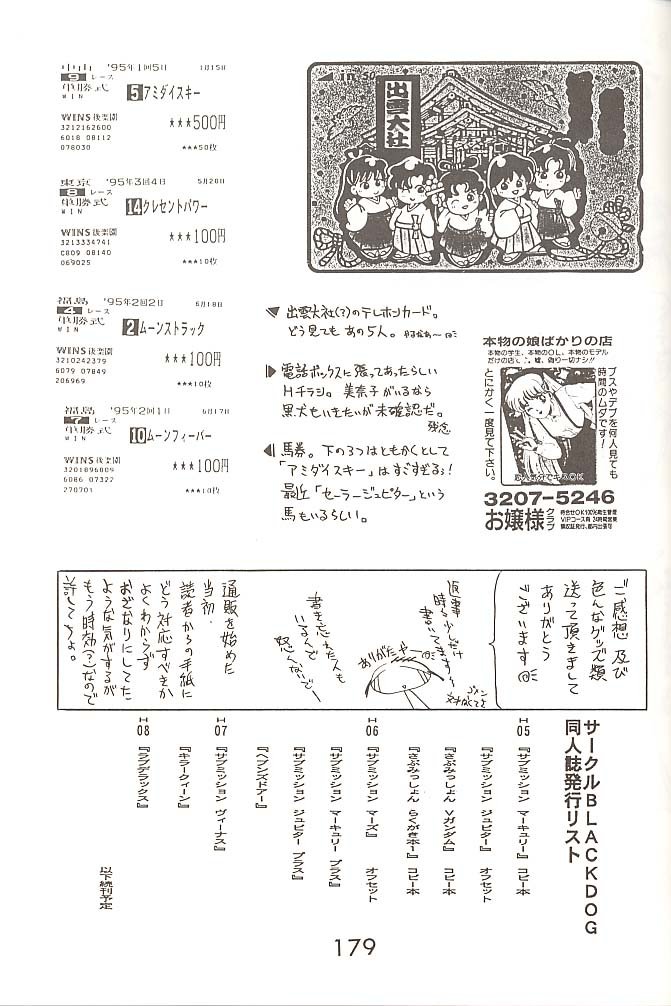 中山 '95年1回5日 1月15日
9 レース
単勝式 5 アミダイスキー
WIN
WINS後楽園 ***500円
3212162600
6018 08112
078030 ***50枚
東京 '95年3回4日 5月28日
8 レース
単勝式 14 クレセントパワー
WIN
WINS後楽園 ***100円
3213334741
C809 08140
069025 ***10枚
福島 '95年2回2日 6月18日
4 レース
単勝式 2 ムーンストラック
WIN
WINS後楽園
3210242379 ***100円
6079 07849
206969 ***10枚
福島 '95年2回1日 6月17日
7 レース
単勝式 10 ムーンフィーバー
WIN
WINS後楽園 ***100円
3201896809
6086 07322
270701 ***10枚
50
出雲大社
出雲大社(?)のテレホンカード。
どう見てもあの5人。
電話ボックスに張ってあったらしい
Hチラシ。美奈子がいるなら
黒犬もいきたいが未確認だ。
残念
馬券。下の3つはともかくとして
「アミダイスキー」はすごすぎる!
最近「セーラージュピター」という
馬もいるらしい。
本物の娘ばかりの店
本物の学生、本物のOL、本物のモデル
だけの店で、嘘、偽り一切ナシ!!
ブスやデブを何人見ても
時間のムダです!
とにかく一度見て下さい。
恋人気分でキスOK
3207-5246
お嬢様クラブ
待合せOK100%衛生管理
VIPコース有 24時間営業
領収証発行、都内出張可
ご感想 及び
色んなグッズ類
送って頂きまして
ありがとう
ございます
返事
時々少しだけ
書いてますヶ
ありがたや
ゴメン
書き忘れた人も
いるんで
怒くないでー
通販を始めた
当初、
読者からの手紙に
どう対応すべきか
よくわからず
おざなりにしてた
ような気がするが
もう時効(?)なので
許してちょ。
サークルBLACKDOG
同人誌発行リスト
H05 『サブミッション マーキュリー』 コピー本
『サブミッション ジュピター』 オフセット
『さぶみっしょん Vガンダム』 コピー本
『さぶみっしょん らくがき本1』 コピー本
H06 『サブミッション マーズ』 オフセット
『サブミッション マーキュリー プラス』
『サブミッション ジュピター プラス』
『ヘブンズドアー』
H07 『サブミッション ヴィーナス』
『キラークィーン』
H08 『ラブデラックス』
以下続刊予定
179